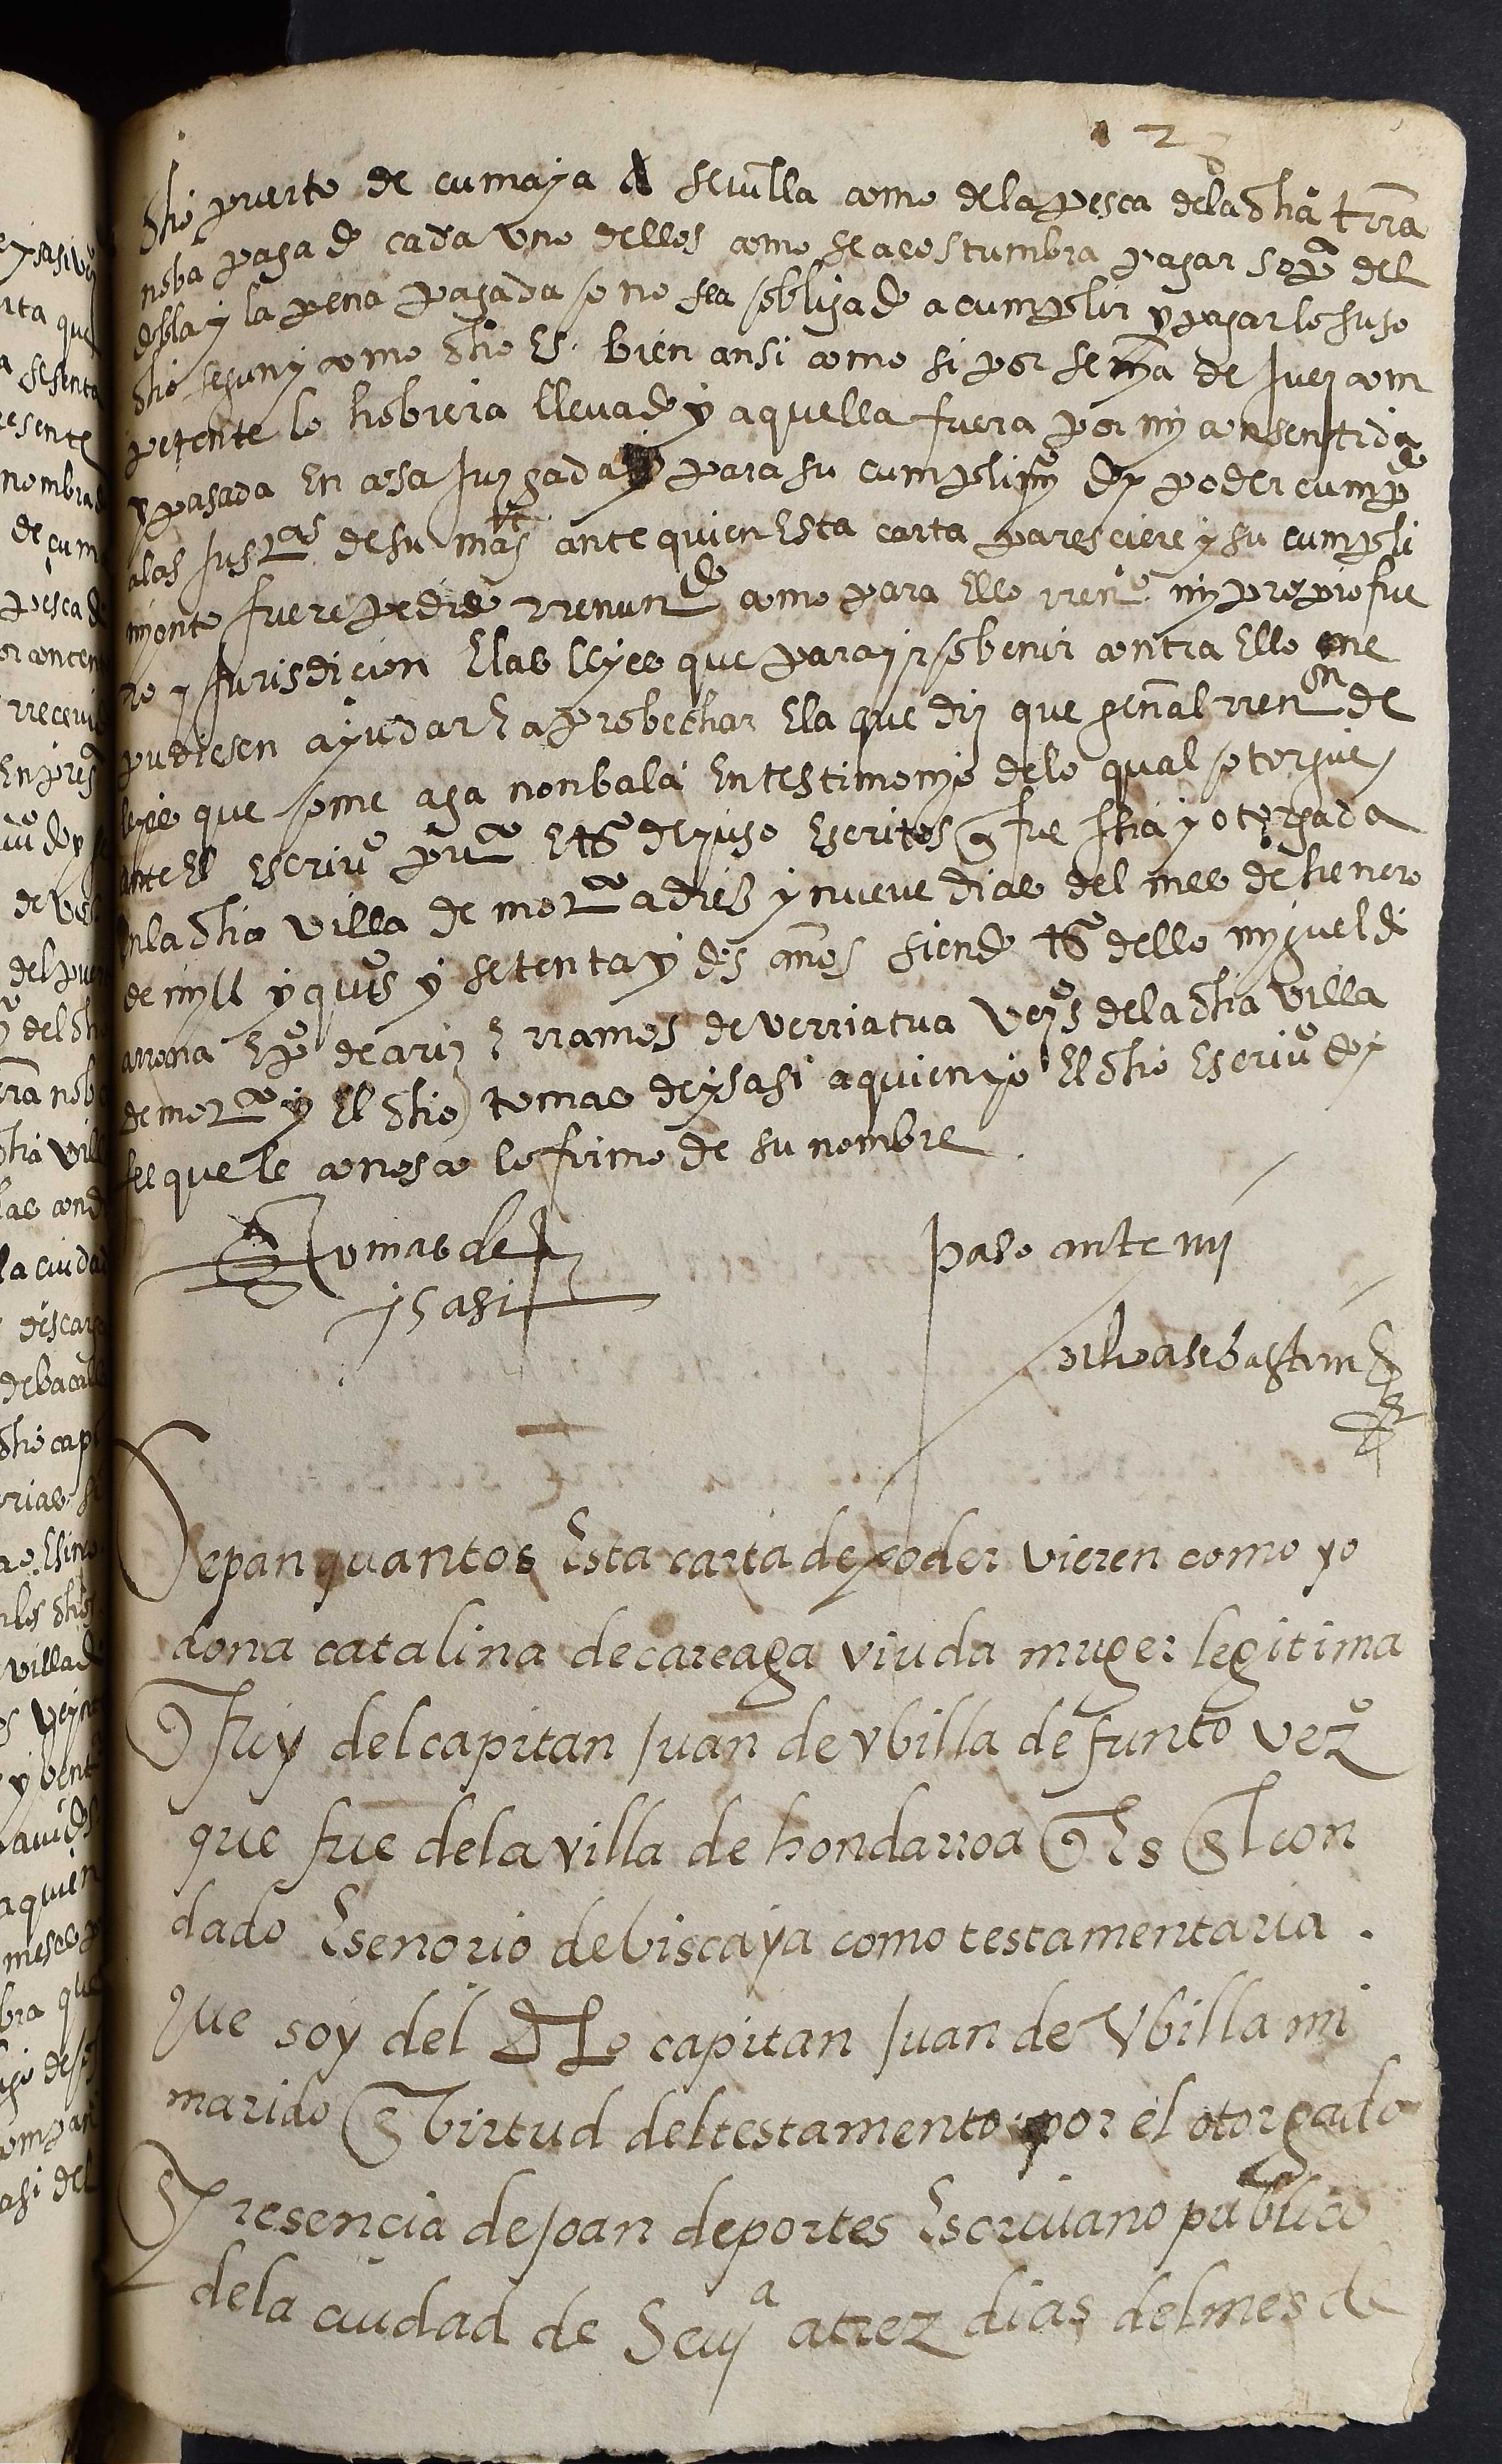 2
dho puerto de cumaya A sevilla como de la pesca de la dha trra
noba pagado cada uno dellos como se acostumbra pagar so pa del
dobla y la pena pagada o no sea obligado a cumplir y pagar lo suso
dho segun y como dho Es. bien ansi como si por sena de Juez com
petente lo hobiera llevado y aquella fuera por my consentida
y pasada En cosa Juzgada y para su cumplimyo doy poder cumpdo
a las Justas de su mag ante quien Esta carta paresciere y su cumpli
myento fuere pedido rrenundo como para Ello rreno my propio fue
ro y Jurisdicion E las lleyes que para yr o benir contra Ello me
pudiesen ayudar E aprobechar E la que diz que general rrenon de
leyes que ome aga non bala En testimonyo de lo qual otorgue
ante El Escrivo puco E ts de yuso Escritos q fue fha y otorgada
En la dha villa de motco a diez y nueve dias del mes de henero
de myll y quis y setenta y dos anos siendo ts dello myguel de
arrona E po de ariz E rramos de verriatua vezos de la dha villa
de motco y El dho tomas de ysasi a quien yo El dho Escrivo doy
fee que le conosco lo firmo de su nombre
Tomas de
ysasi
Paso ante my
ochoa sebastian
Sepan quantos Esta carta de poder vieren como yo
dona catalina de careaga viuda muger legitima
q fuy del capitan Juan de ybilla defunto vezo
que fue de la villa de hondarroa q Es En El con
dado E senorio de biscaya como testamentaria.
Que soy del dho capitan Juan de Vbilla mi
marido En birtud del testamento por el otorgado
En Presencia de Joan de portes Escrivano publico
de la ciudad de Seuja a trez dias del mes de